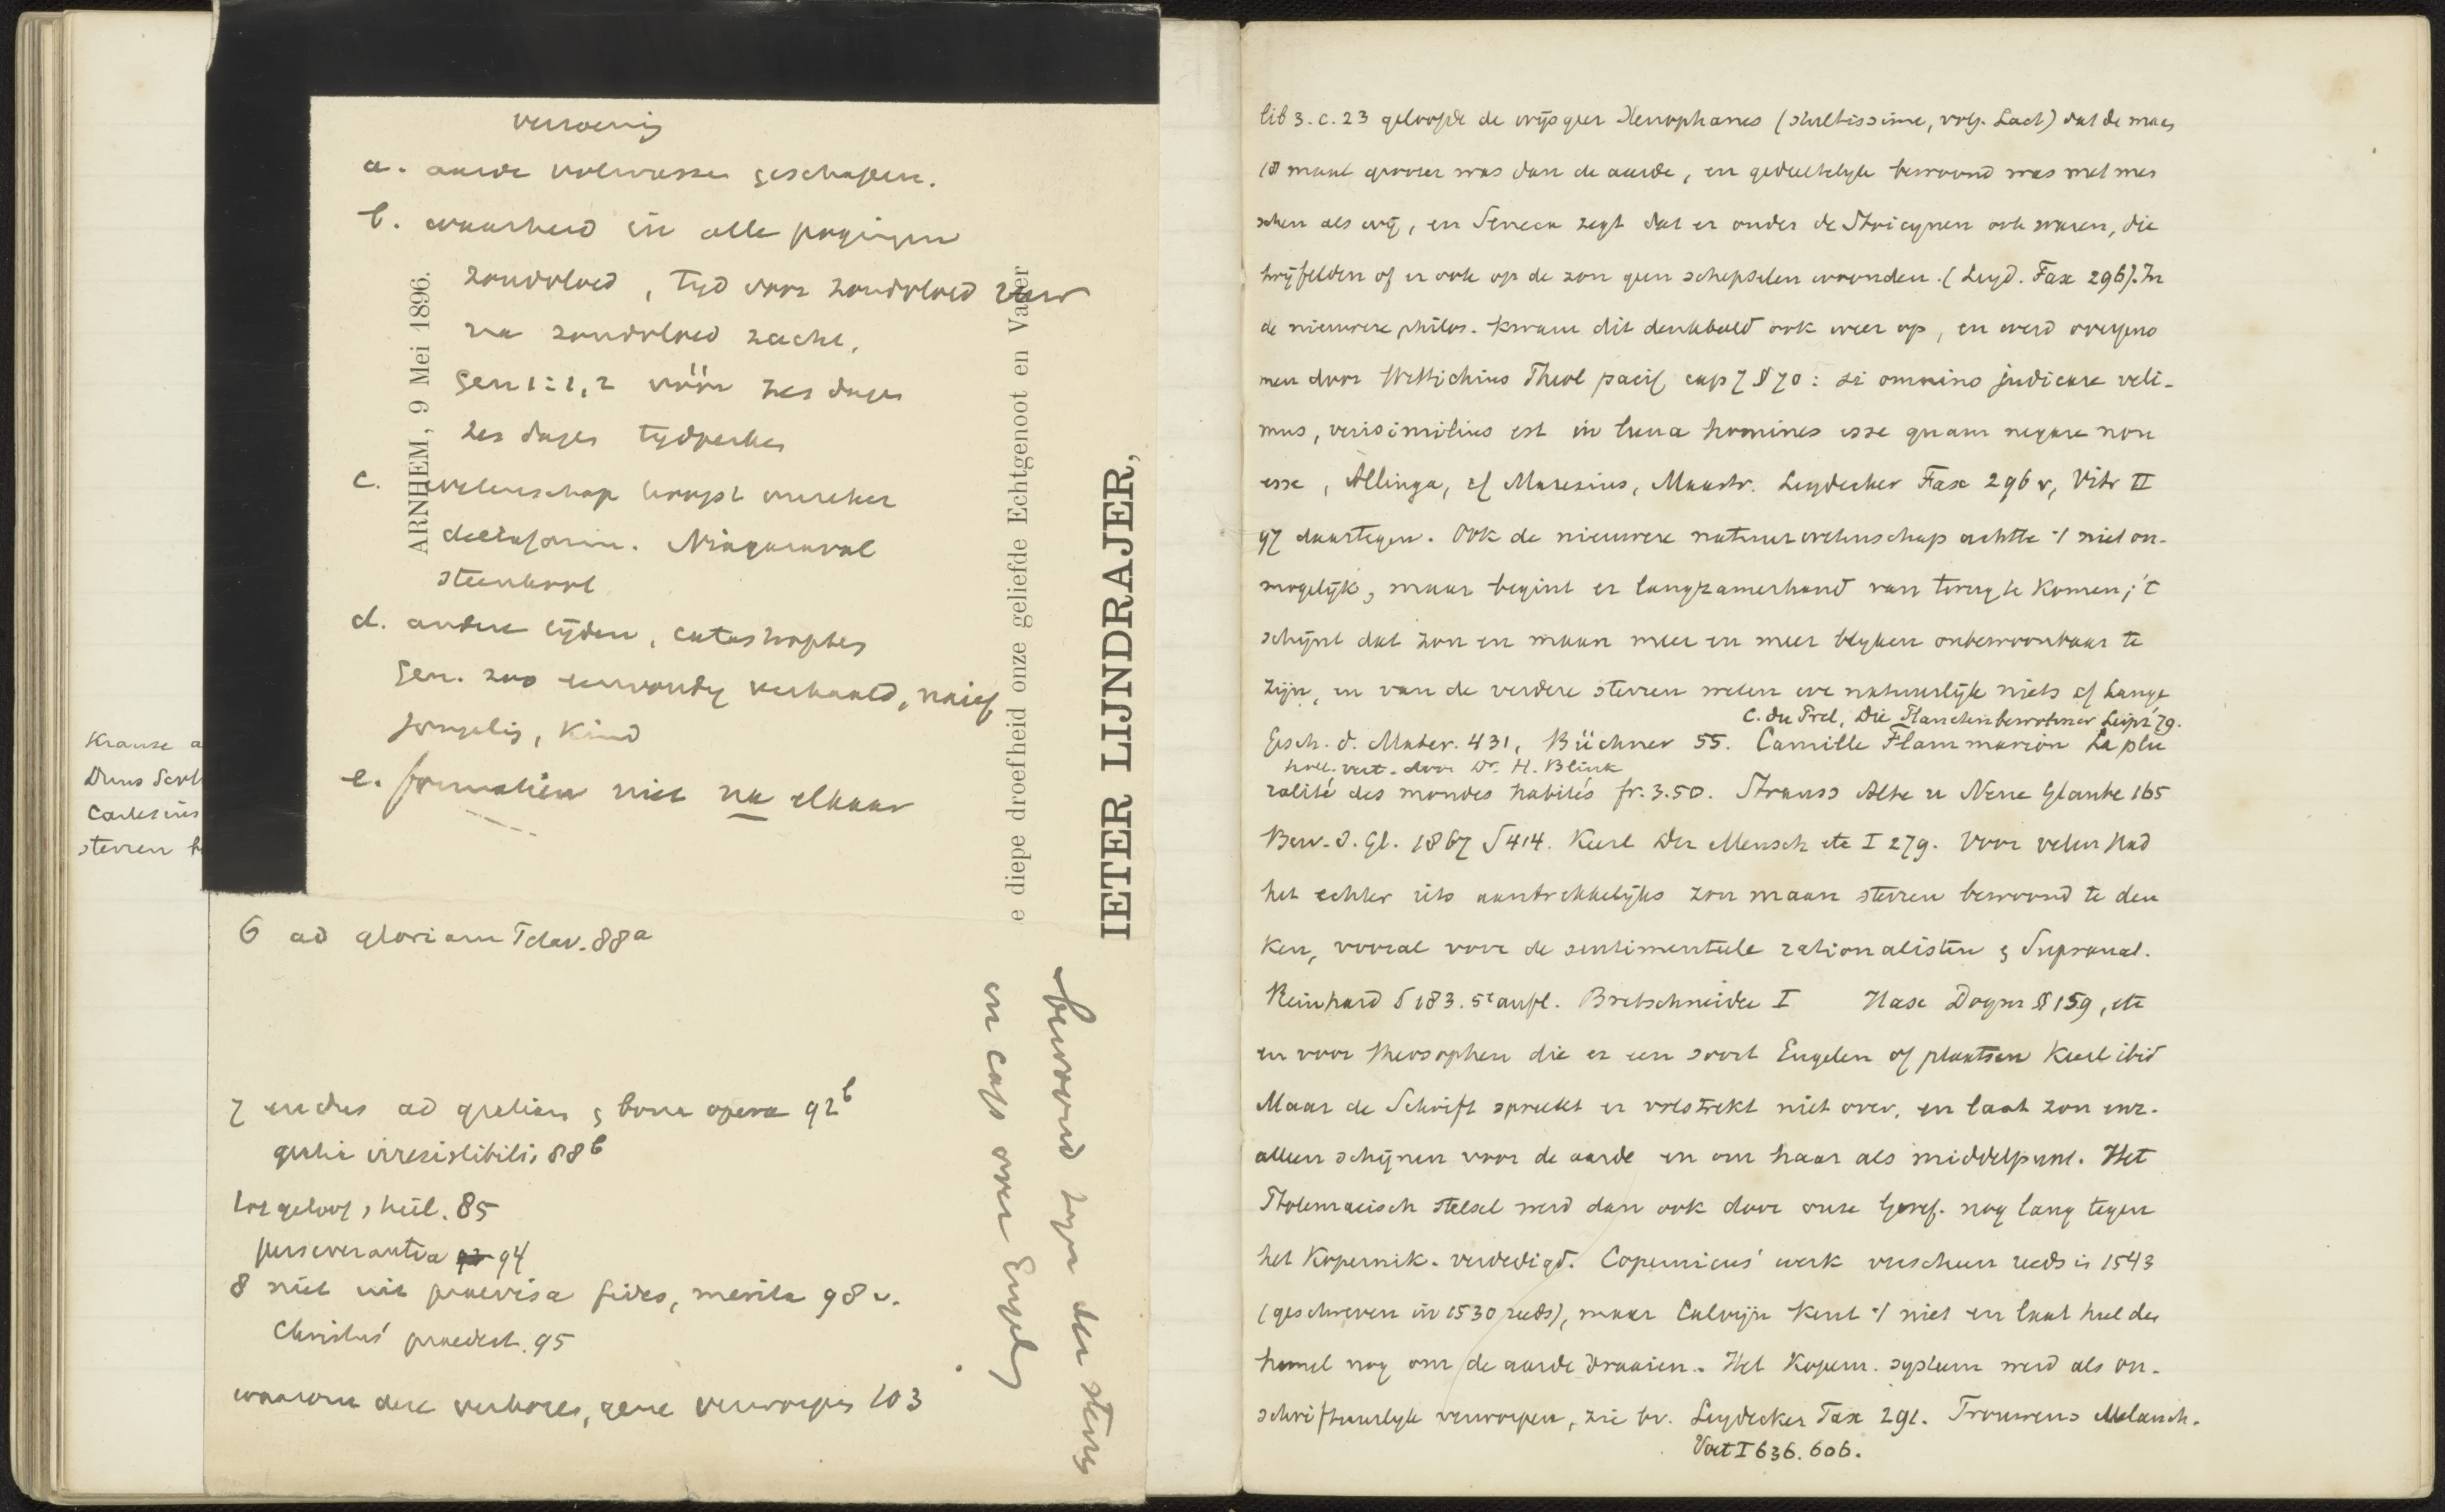 a. aarde volwassen geschapen.
b. waarheid in alle pogingen
zondvloed, tijd voor zondvloed
na zondvloed zacht.
Gen 1:1,2 vóór zes dagen
zes dagen tijdperken
c. wetenschap
Niagaraval
steenkool
d. andere tijden, catastrophes
Gen. zoo eenvoudig verhaald, naief
kind
e. formatien niet na elkaar
ARNHEM, 9 Mei 1896.
e diepe droefheid onze geliefde Echtgenoot en Vader
IETER LIJNDRAJER,
Krause a
Duns Scot
Cartesius
sterren b
6 ad gloriam 88a
7 ad gratiam & bona opera 92b
gratia irresistibilis 88b
85
perseverantia 94
8 niet uit praevisa fides, merita 98v.
Christus' praedest. 95
waarom deze verkoren, gene verworpen 103
bewoond zijn der sterren
en caps over Engelen
lib 3. c. 23 geloofde de wijsgeer Xenophanes (stultissime, volg. Lact) dat de maan
18 maal grooter was dan de aarde, en gedeeltelijk bewoond was met men
schen als wij, en Seneca zegt dat er onder de Stoicynen ook waren, die
twijfelden of er ook op de zon geen schepselen woonden. (Leyd. Fax 296). In
de nieuwere philos. kwam dit denkbeeld ook weer op, en werd overgeno
men door Wittichius Theol pacif cap 7 § 70: si omnino judicare veli-
mus, verisimilius est in luna homines esse quam negare non
esse, Allinga, cf Maresius, Mastr. Leydecker Fax 296v, Vitr II
97 daartegen. Ook de nieuwere natuurwetenschap achtte 't niet on-
mogelijk, maar begint er langzamerhand van terug te komen; 't
schijnt dat zon en maan meer en meer blijken onbewoonbaar te
zijn, en van de verdere sterren weten we natuurlijk niets cf Lange
C. du Prel, Die Planetenbewohner Leipz '79.
Gesch. d. Mater. 431, Büchner 55. Camille Flammarion La plu
holl. vert. door Dr. H. Blink
ralité des mondes habités fr. 3.50. Strauss Alte u Neue Glaube 165
Bew. d. Gl. 1867 S 414. Keerl Der Mensch etc I 279. Voor velen had
het echter iets aantrekkelijks zon maan sterren bewoond te den
ken, vooral voor de sentimenteele rationalisten & Supranat.
Reinhard S 183. 5e aufl. Bretschneider I Hase Dogm § 159, etc
en voor theosophen die er een soort Engelen op plaatsen Keerl ibid
Maar de Schrift spreekt er volstrekt niet over, en laat zon enz.
alleen schijnen voor de aarde en om haar als middelpunt. Het
Ptolemaeisch stelsel werd dan ook door onze Geref. nog lang tegen
het Kopernik. verdedigd. Copernicus' werk verscheen reeds in 1543
(geschreven in 1530 reeds), maar Calvijn kent 't niet en laat heel den
hemel nog om de aarde draaien. Het Kopern. systeem werd als on-
schriftuurlijk verworpen, zie bv. Leydecker Fax 291. Trouwens Melanch.
Voet I 636. 606.